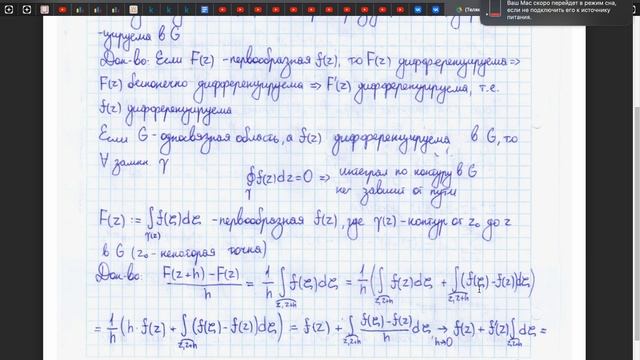 Ваш Mac скоро перейдет в режим сна,
если не подключить его к источнику
питания.
-цируема в G
Док-во: Если F(z) - первообразная f(z), то F(z) дифференцируема =>
F(z) бесконечно дифференцируема => F'(z) дифференцируема, т.е.
f(z) дифференцируема
Если G - односвязная область, а f(z) дифференцируема в G, то
∀ замкн. γ
∮_γ f(z)dz = 0 => интеграл по контуру в G
не зависит от пути
F(z) := ∫_γ(z) f(ζ)dζ - первообразная f(z), где γ(z) - контур от z₀ до z
в G (z₀ - некоторая точка)
Док-во: (F(z+h) - F(z))/h = 1/h ∫_{z,z+h} f(ζ)dζ = 1/h (∫_{z,z+h} f(z)dζ + ∫_{z,z+h} (f(ζ) - f(z))dζ)
= 1/h (h·f(z) + ∫_{z,z+h} (f(ζ) - f(z))dζ) = f(z) + ∫_{z,z+h} (f(ζ) - f(z))/h dζ → h→0 f(z) + f'(z) ∫_{z,z+h} dζ =